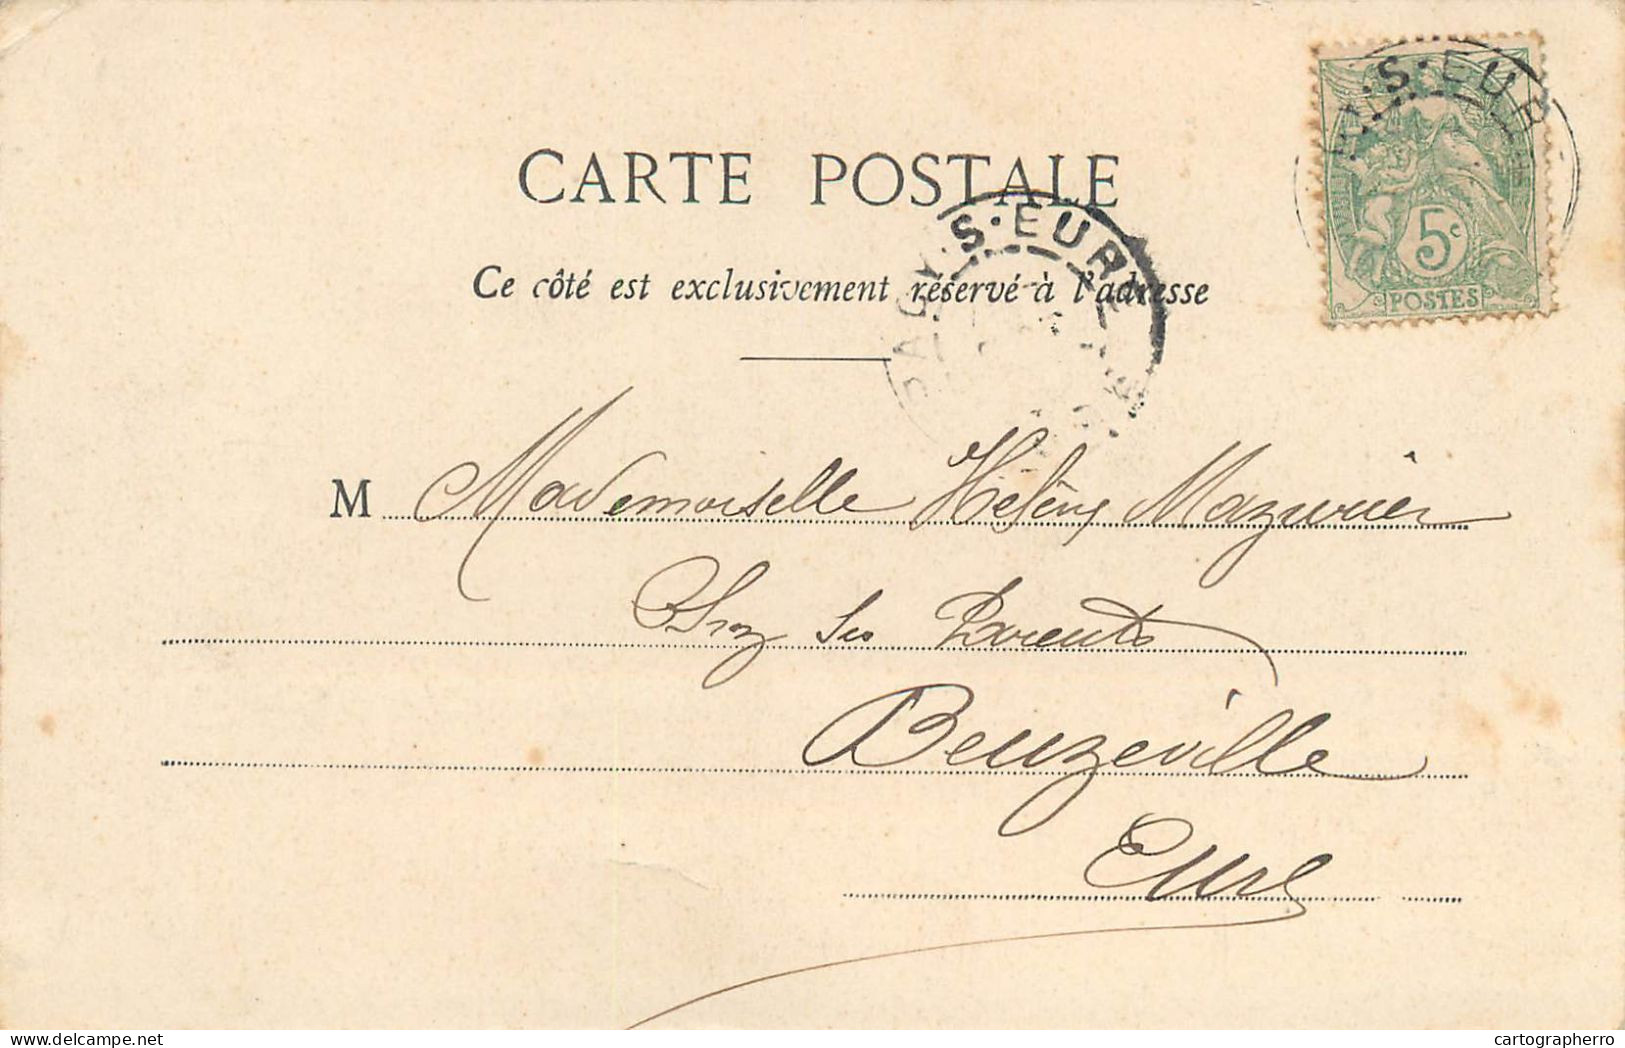 CARTE POSTALE
Ce côté est exclusivement réservé à l'adresse
PACY·S·EURE
Y·S·EUR
5c
POSTES
M Mademoiselle Hélène Mazurier
Chez Ses Parents
Beuzeville
Eure
cartographerro